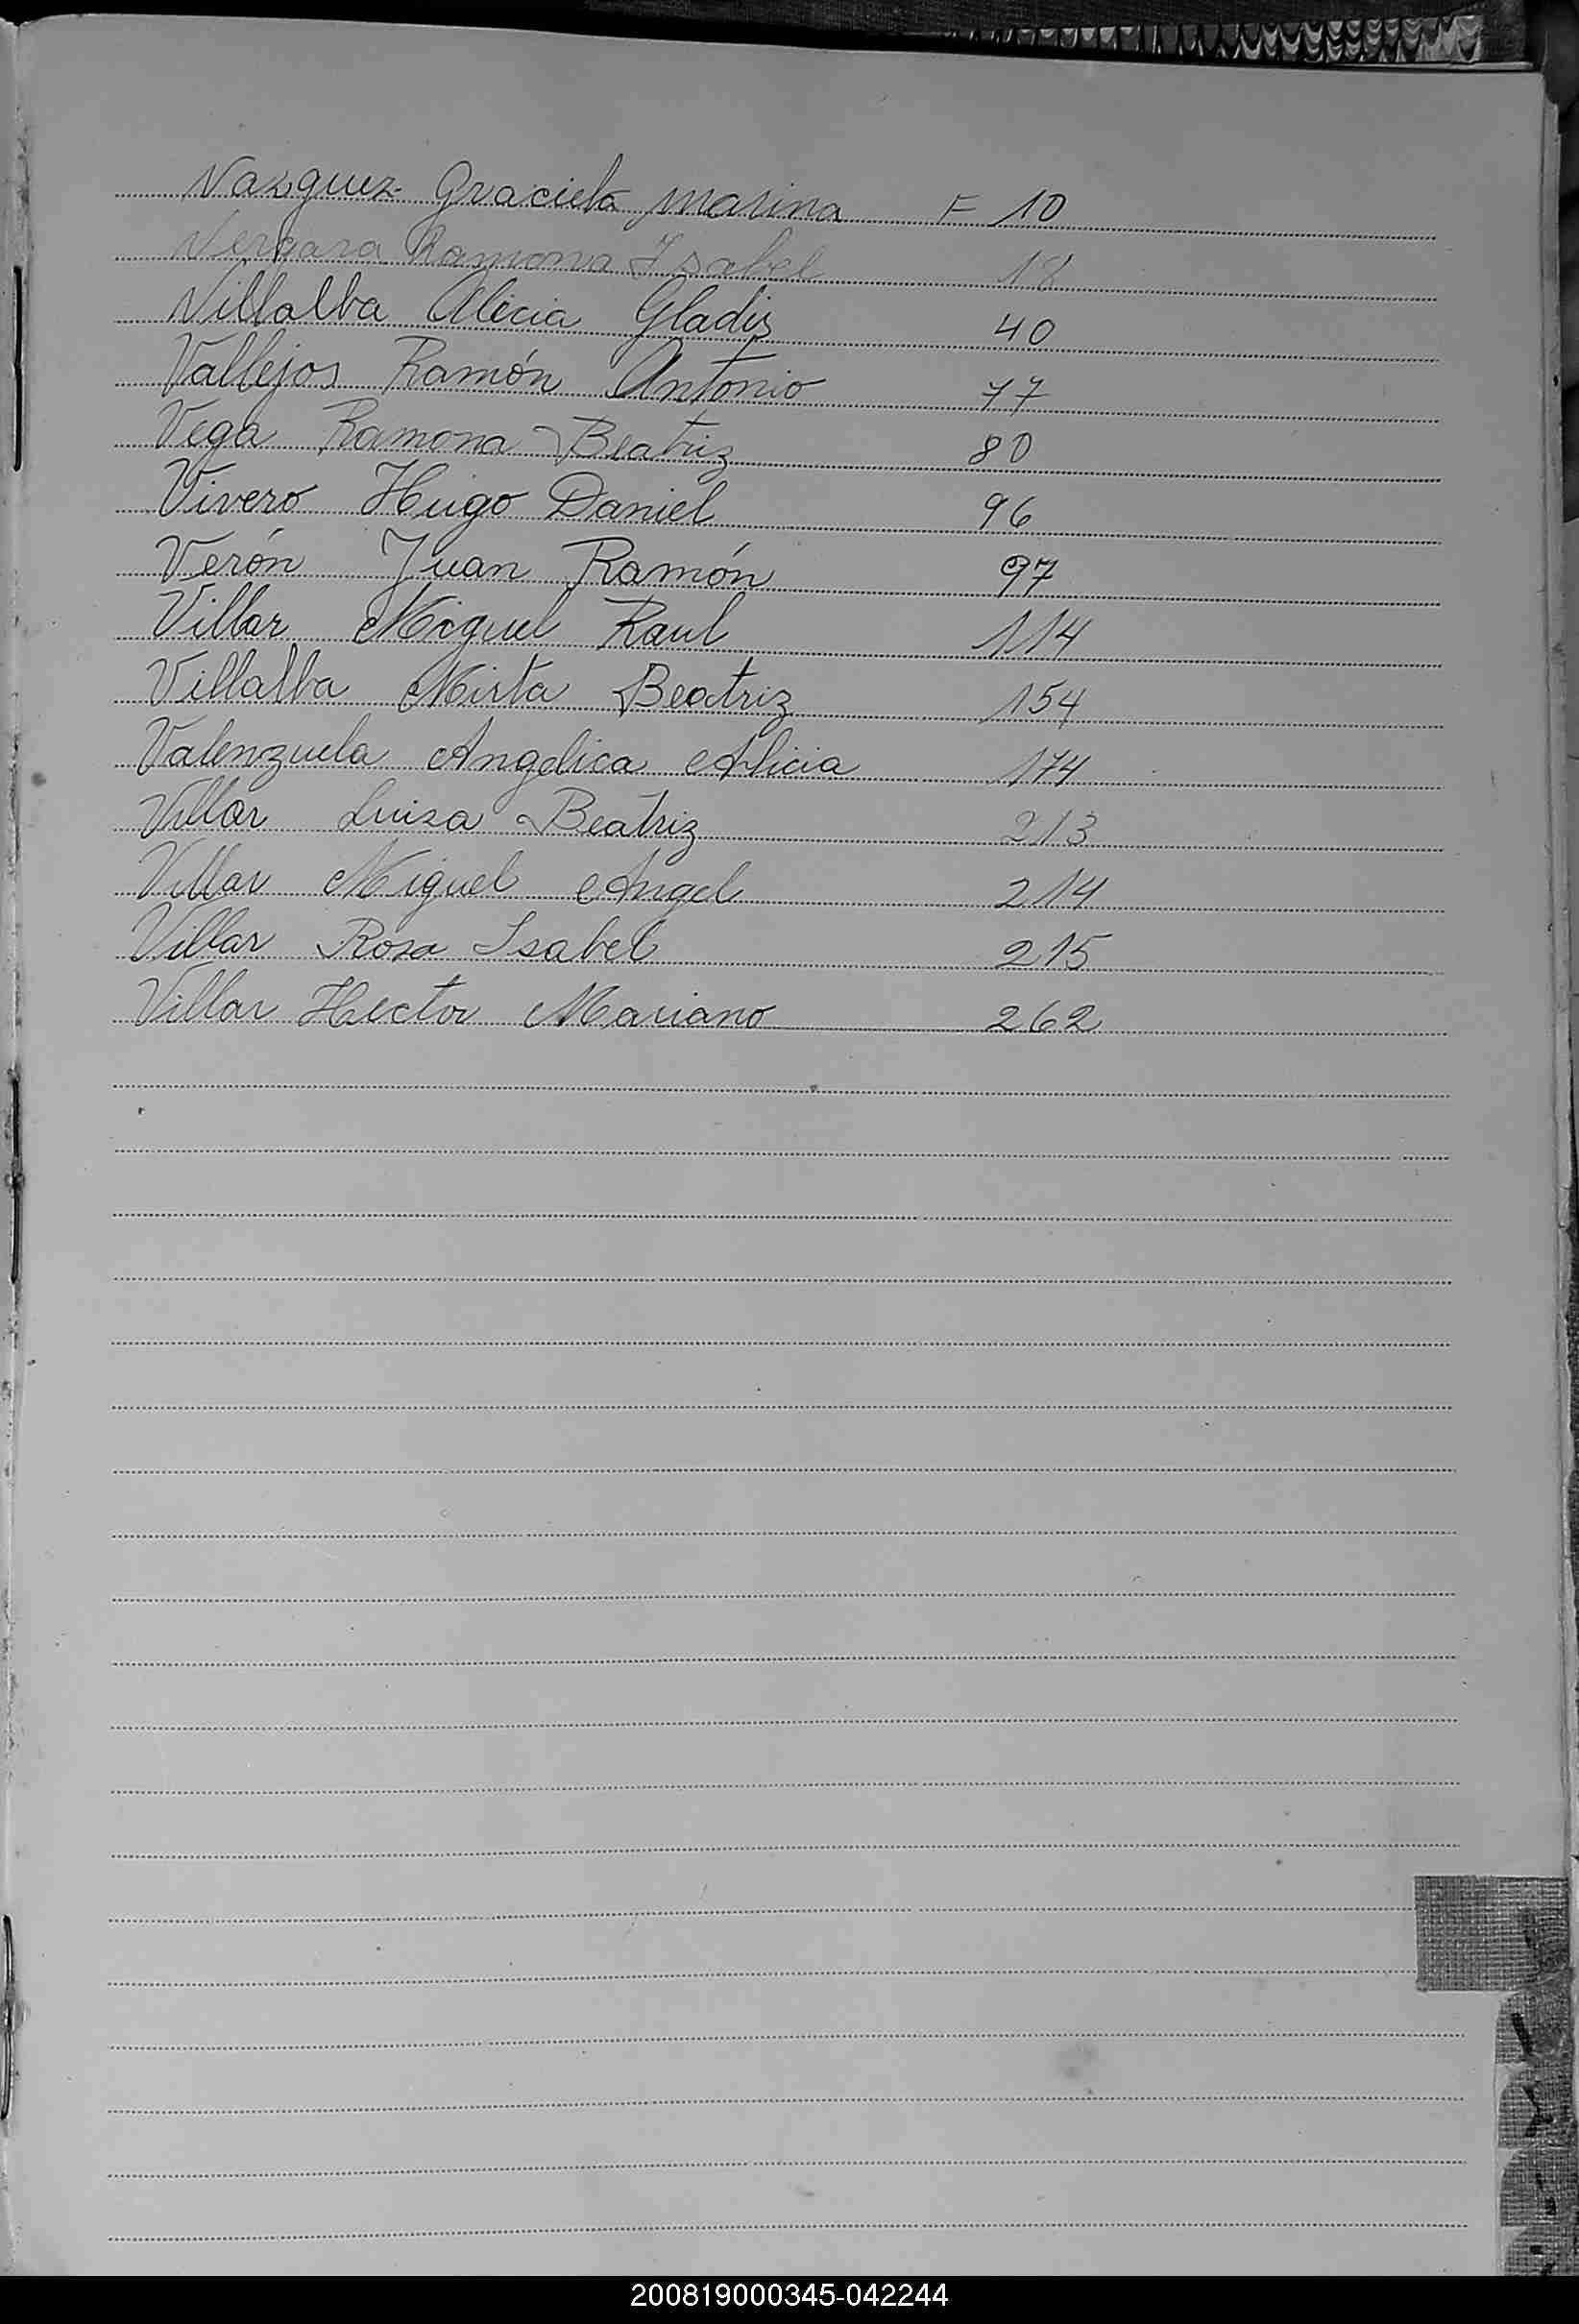 Vazquez Graciela Marina F 10
Vergara Ramona Isabel 18
Villalba Alicia Gladis 40
Vallejos Ramón Antonio 77
Vega Ramona Beatriz 80
Vivero Hugo Daniel 96
Verón Juan Ramón 97
Villar Miguel Raul 114
Villalba Mirta Beatriz 154
Valenzuela Angelica Alicia 174
Villar Luisa Beatriz 213
Villar Miguel Angel 214
Villar Rosa Isabel 215
Villar Hector Mariano 262
200819000345-042244